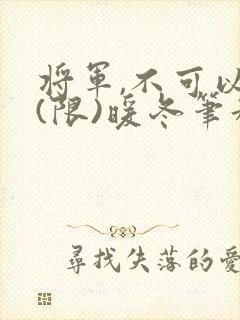 將軍,不可以
(限)暖冬筆
尋找失落的愛